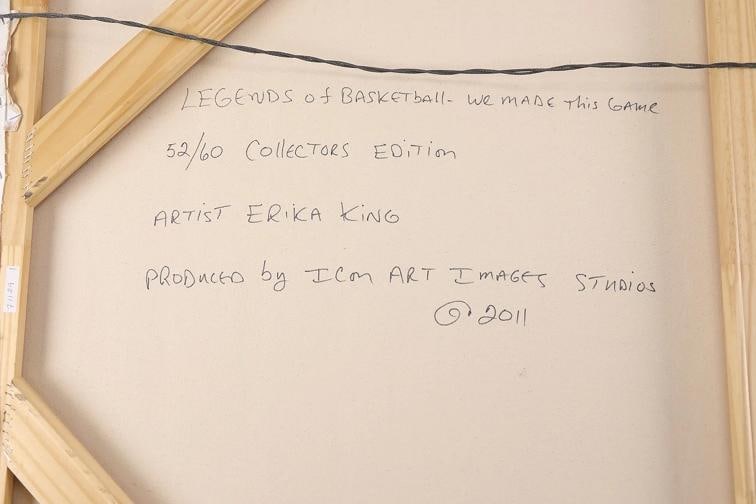 LEGENDS of BASKETball- WE MADE This GAME
52/60 COllECTORS EDiTion
ARTiST ERiKA KiNG
PRODUCED by ICon ART IMAGES STUDIOS
© 2011